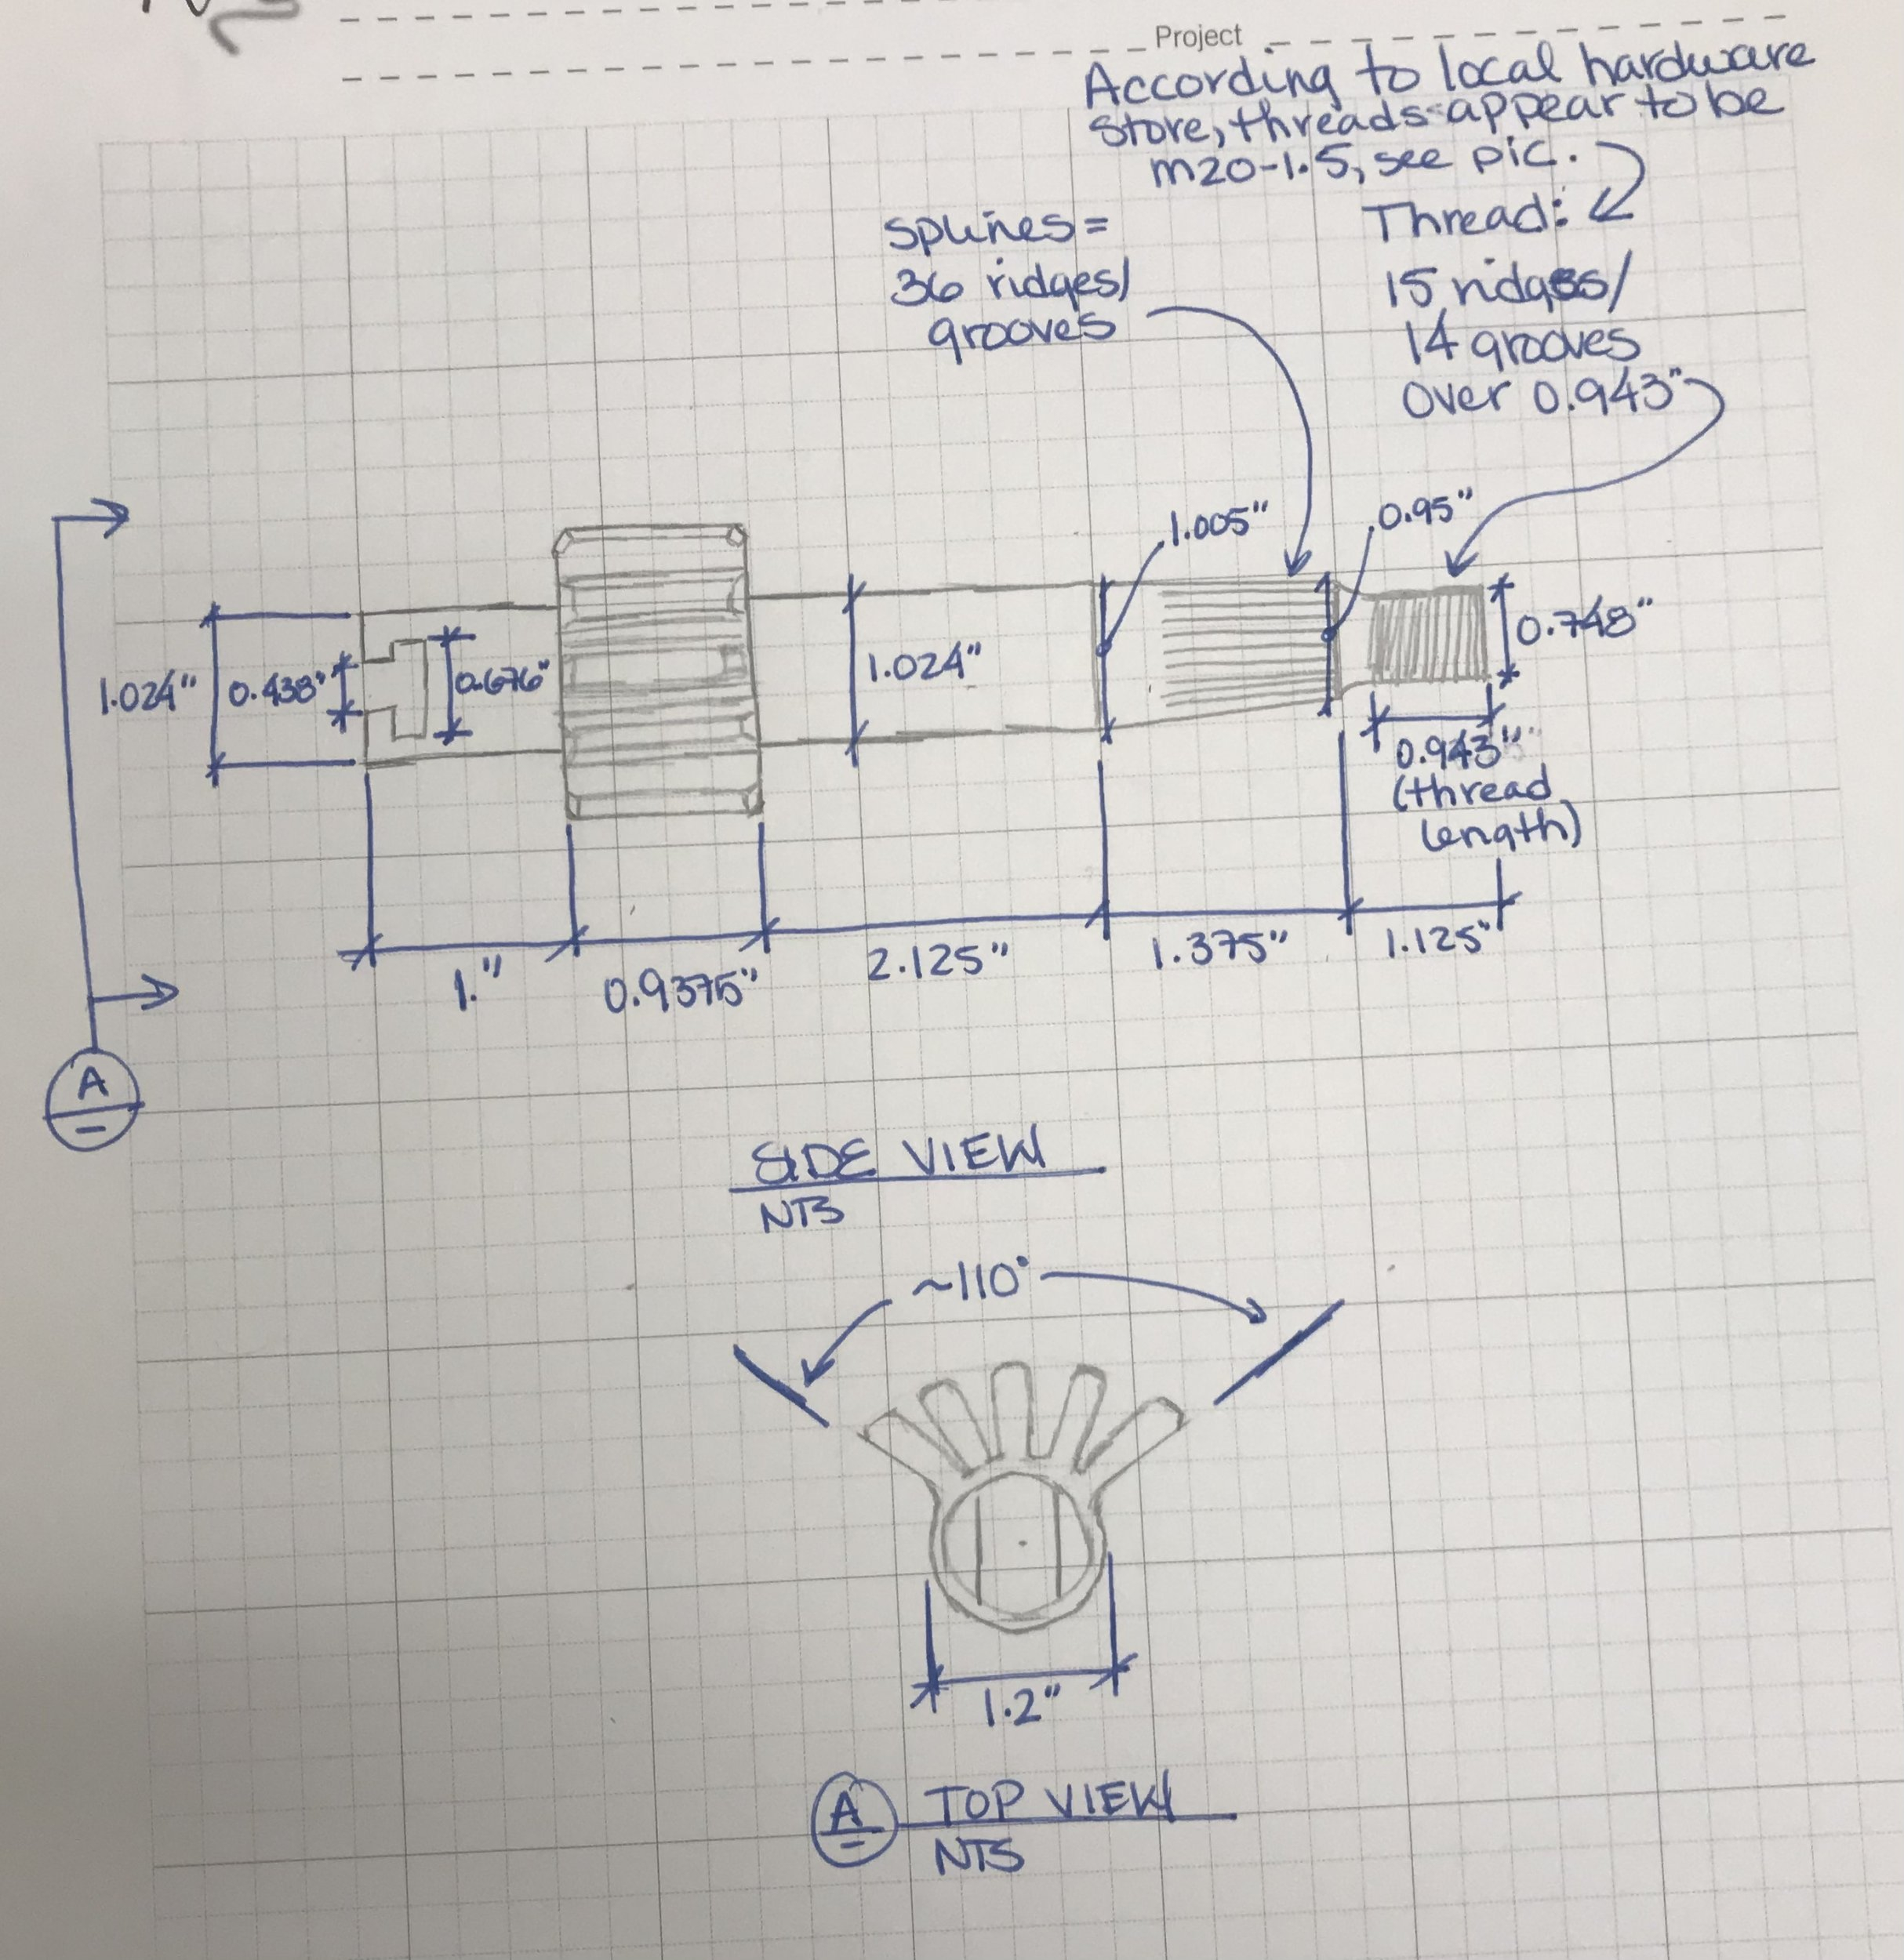 Project
According to local hardware
store, threads appear to be
m20-1.5, see pic.
Thread:
15 ridges/
14 grooves
over 0.943"
splines =
36 ridges/
grooves
1.005"
0.95"
1.024"
0.438"
0.676"
1.024"
0.748"
0.943"
(thread
length)
1."
0.9375"
2.125"
1.375"
1.125"
A
-
SIDE VIEW
NTS
~110°
1.2"
A
-
TOP VIEW
NTS